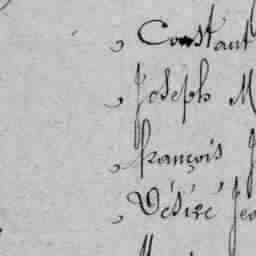 , Constant
, Joseph M
, françois J
, Désiré Jea